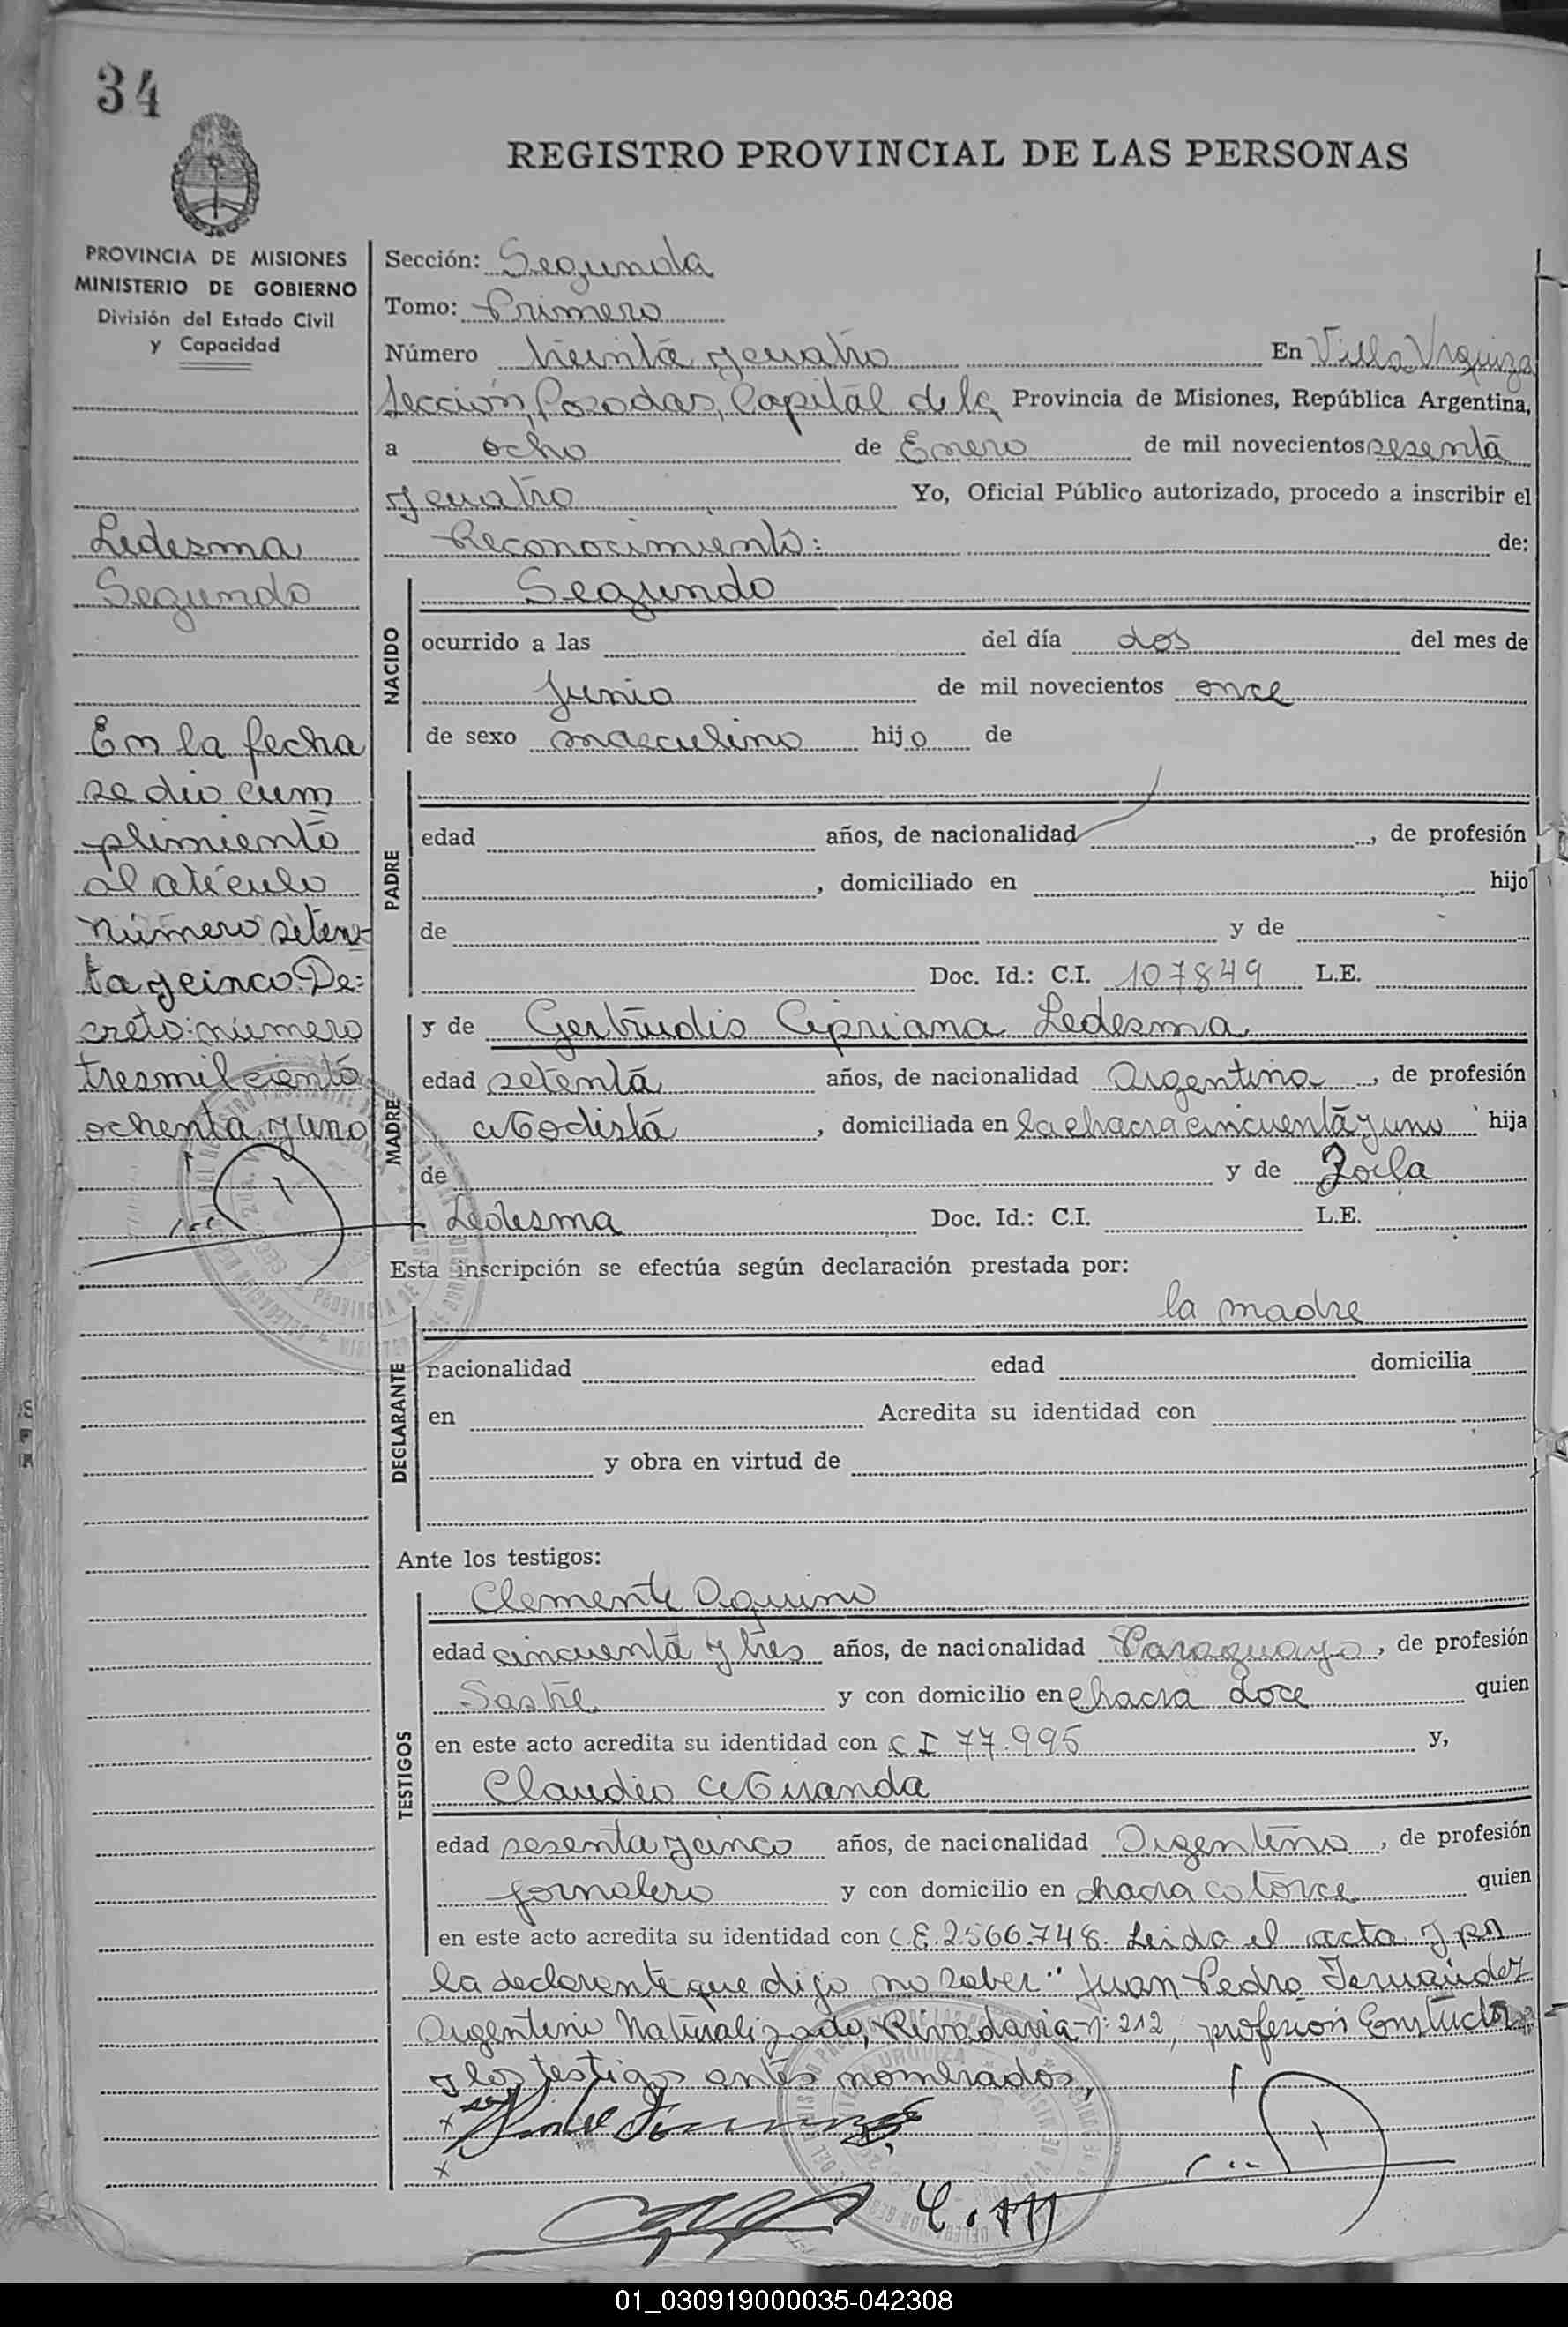 34
REGISTRO PROVINCIAL DE LAS PERSONAS
PROVINCIA DE MISIONES
MINISTERIO DE GOBIERNO
División del Estado Civil
y Capacidad
Ledesma
Segundo
En la fecha
se dio cum
plimiento
al atículo
número seten-
ta y cinco De:
creto número
tresmil ciento
ochenta y uno
Sección: Segunda
Tomo: Primero
Número treinta y cuatro En Villa Urquiza
Sección, Posadas, Capital de la Provincia de Misiones, República Argentina,
a ocho de Enero de mil novecientos sesenta
y cuatro Yo, Oficial Público autorizado, procedo a inscribir el
Reconocimiento: de:
NACIDO
Segundo
ocurrido a las del día dos del mes de
Junio de mil novecientos once
de sexo masculino hijo de
PADRE
edad años, de nacionalidad , de profesión
, domiciliado en hijo
de y de
Doc. Id.: C.I. 107849 L.E.
MADRE
y de Gertrudis Cipriana Ledesma
edad setenta años, de nacionalidad Argentina , de profesión
Modista , domiciliada en la chacra cincuenta y uno hija
de y de Zoila
Ledesma Doc. Id.: C.I. L.E.
Esta inscripción se efectúa según declaración prestada por:
DECLARANTE
la madre
nacionalidad edad domicilia
en Acredita su identidad con
y obra en virtud de
Ante los testigos:
TESTIGOS
Clemente Aquino
edad cincuenta y tres años, de nacionalidad Paraguayo , de profesión
Sastre y con domicilio en chacra doce quien
en este acto acredita su identidad con C I 77.995 y,
Claudio Miranda
edad sesenta y cinco años, de nacionalidad Argentino , de profesión
jornalero y con domicilio en chacra catorce quien
en este acto acredita su identidad con 2566.748. Leida el acta y por
la declarente que dijo no saber" Juan Pedro Fernández
Argentino Naturalizado, Rivadavia n: 212, profesion Constuctor
y los testigos antes nombrados,
01_030919000035-042308